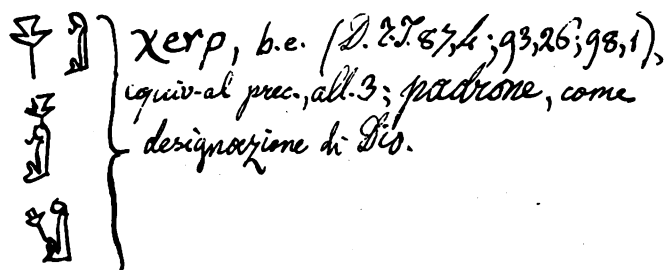 χerp, b.e. (D.T.I. 87,4; 93,26; 98,1),
equiv-al prec., all. 3; padrone, come
designazione di Dio.